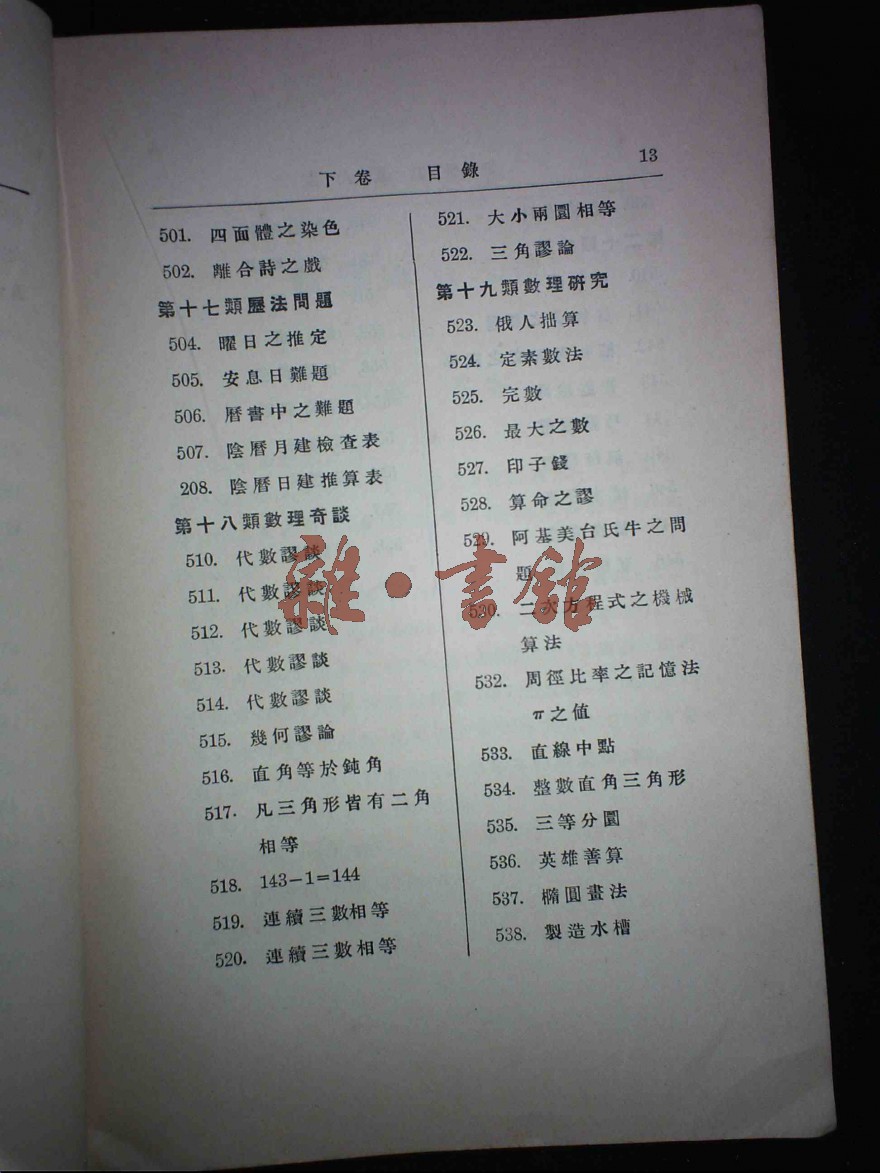 下卷 目錄 13
501. 四面體之染色
502. 離合詩之戲
第十七類歷法問題
504. 曜日之推定
505. 安息日難題
506. 曆書中之難題
507. 陰曆月建檢查表
208. 陰曆日建推算表
第十八類數理奇談
510. 代數謬談
511. 代數謬談
512. 代數謬談
513. 代數謬談
514. 代數謬談
515. 幾何謬論
516. 直角等於鈍角
517. 凡三角形皆有二角
相等
518. 143－1＝144
519. 連續三數相等
520. 連續三數相等
521. 大小兩圓相等
522. 三角謬論
第十九類數理研究
523. 俄人拙算
524. 定素數法
525. 完數
526. 最大之數
527. 印子錢
528. 算命之謬
529. 阿基美台氏牛之問
題
530. 二次方程式之機械
算法
532. 周徑比率之記憶法
π之値
533. 直線中點
534. 整數直角三角形
535. 三等分圓
536. 英雄善算
537. 橢圓畫法
538. 製造水槽
雜·書館